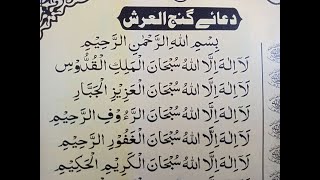 دعائے گنج العرش
بِسْمِ اللهِ الرَّحْمٰنِ الرَّحِيْمِ
لَآ اِلٰهَ اِلَّا اللهُ سُبْحَانَ الْمَلِكِ الْقُدُّوْسِ
لَآ اِلٰهَ اِلَّا اللهُ سُبْحَانَ الْعَزِيْزِ الْجَبَّارِ
لَآ اِلٰهَ اِلَّا اللهُ سُبْحَانَ الرَّءُوْفِ الرَّحِيْمِ
لَآ اِلٰهَ اِلَّا اللهُ سُبْحَانَ الْغَفُوْرِ الرَّحِيْمِ
لَآ اِلٰهَ اِلَّا اللهُ سُبْحَانَ الْكَرِيْمِ الْحَكِيْمِ